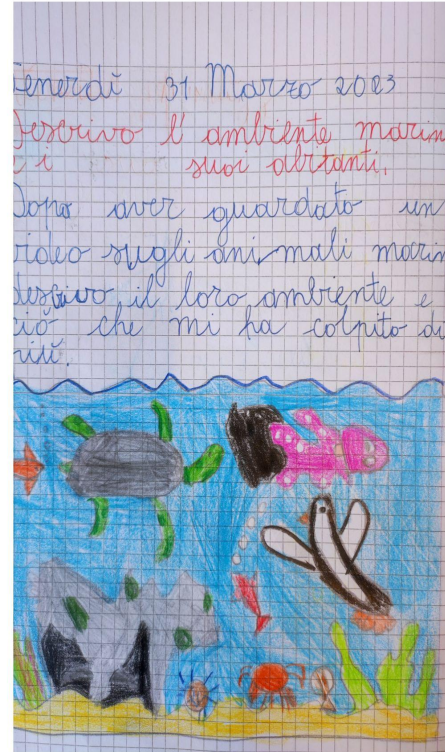 Venerdì 31 Marzo 2023
Descrivo l' ambiente marin
e i suoi abitanti.
Dopo aver guardato un
video sugli animali marin
descrivo il loro ambiente e
ciò che mi ha colpito di
più.